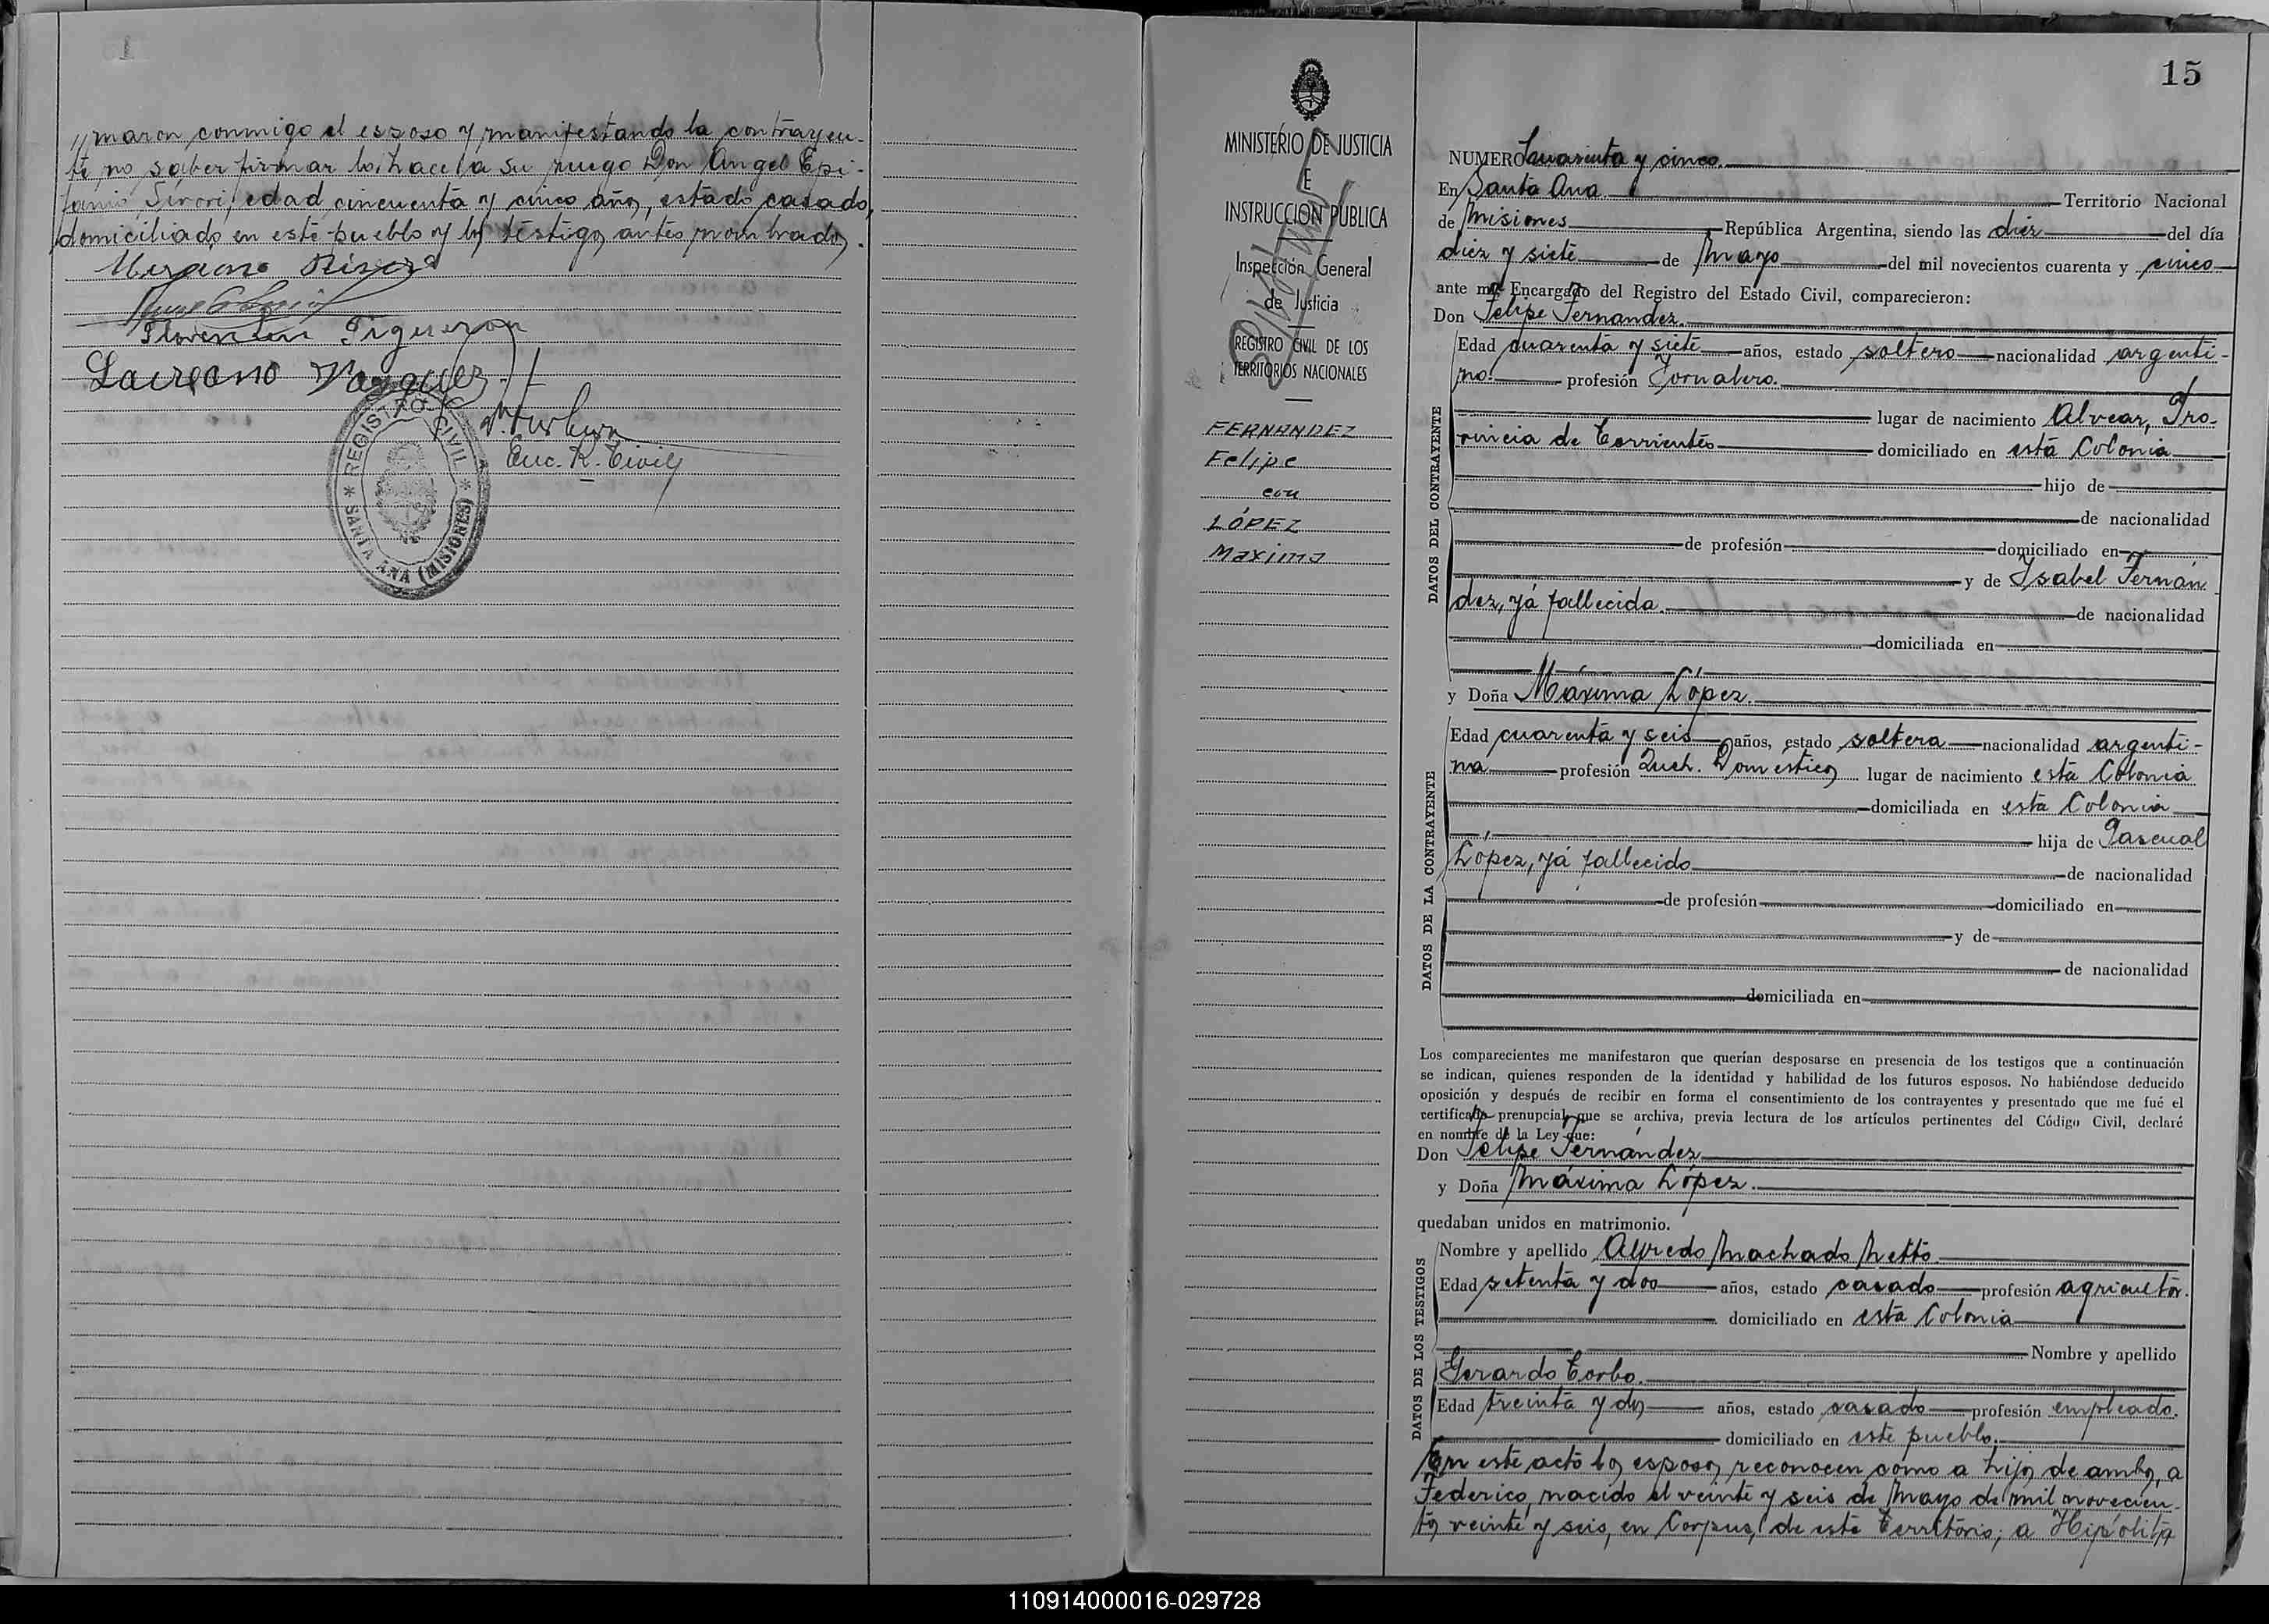 //maron conmigo el esposo y manifestando la contrayen-
te no saber firmar lo hace a su ruego Don Angel Epi-
fanio Sívori, edad cincuenta y cinco años, estado casado,
domiciliado en este pueblo y los testigos antes nombrados.
Rivero
Florentin Figueroa
Laureano Vasquez
Enc. R. Civil
* REGISTRO CIVIL * SANTA ANA (MISIONES)
MINISTERIO DE JUSTICIA
E
INSTRUCCION PUBLICA
Inspección General
de Justicia
REGISTRO CIVIL DE LOS
TERRITORIOS NACIONALES
FERNANDEZ
Felipe
con
LÓPEZ
Maxima
15
NUMERO Cuarenta y cinco.
En Santa Ana Territorio Nacional
de Misiones República Argentina, siendo las diez del día
diez y siete de Mayo del mil novecientos cuarenta y cinco
ante mí Encargado del Registro del Estado Civil, comparecieron:
Don Felipe Fernandez.
DATOS DEL CONTRAYENTE
Edad cuarenta y siete años, estado soltero nacionalidad argenti-
no. profesión Jornalero.
lugar de nacimiento Alvear, Pro-
vincia de Corrientes domiciliado en esta Colonia
hijo de
de nacionalidad
de profesión domiciliado en
y de Ysabel Fernán
dez, yá fallecida. de nacionalidad
domiciliada en
y Doña Máxima López.
DATOS DE LA CONTRAYENTE
Edad cuarenta y seis años, estado soltera nacionalidad argenti-
na profesión Queh. Domésticos lugar de nacimiento esta Colonia
domiciliada en esta Colonia
hija de Pascual
López, yá fallecido de nacionalidad
de profesión domiciliado en
y de
de nacionalidad
domiciliada en
Los comparecientes me manifestaron que querían desposarse en presencia de los testigos que a continuación
se indican, quienes responden de la identidad y habilidad de los futuros esposos. No habiéndose deducido
oposición y después de recibir en forma el consentimiento de los contrayentes y presentado que me fué el
certificado prenupcial, que se archiva, previa lectura de los artículos pertinentes del Código Civil, declaré
en nombre de la Ley que:
Don Felipe Fernández
y Doña Máxima López.
quedaban unidos en matrimonio.
DATOS DE LOS TESTIGOS
Nombre y apellido Alfredo Machado Netto
Edad setenta y dos años, estado casado profesión agricultor.
domiciliado en esta Colonia
Nombre y apellido
Gerardo Corbo.
Edad treinta y dos años, estado casado profesión empleado.
domiciliado en este pueblo.
En este acto los esposos reconocen como a hijos de ambos, a
Federico, nacido el veinte y seis de Mayo de mil novecien-
tos veinte y seis, en Corpus, de este Territorio; a Hipólita
110914000016-029728